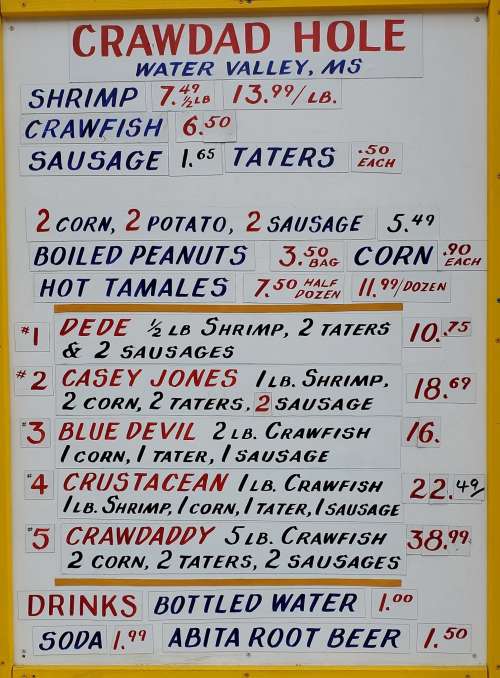 CRAWDAD HOLE
WATER VALLEY, MS
SHRIMP 7.49 ½ LB 13.99/LB.
CRAWFISH 6.50
SAUSAGE 1.65 TATERS .50 EACH
2 CORN, 2 POTATO, 2 SAUSAGE 5.49
BOILED PEANUTS 3.50 BAG CORN .90 EACH
HOT TAMALES 7.50 HALF DOZEN 11.99/DOZEN
#1 DEDE ½ LB SHRIMP, 2 TATERS 10.75
& 2 SAUSAGES
#2 CASEY JONES 1 LB. SHRIMP, 18.69
2 CORN, 2 TATERS, 2 SAUSAGE
#3 BLUE DEVIL 2 LB. CRAWFISH 16.
1 CORN, 1 TATER, 1 SAUSAGE
#4 CRUSTACEAN 1 LB. CRAWFISH 22.49
1 LB. SHRIMP, 1 CORN, 1 TATER, 1 SAUSAGE
#5 CRAWDADDY 5 LB. CRAWFISH 38.99
2 CORN, 2 TATERS, 2 SAUSAGES
DRINKS BOTTLED WATER 1.00
SODA 1.99 ABITA ROOT BEER 1.50